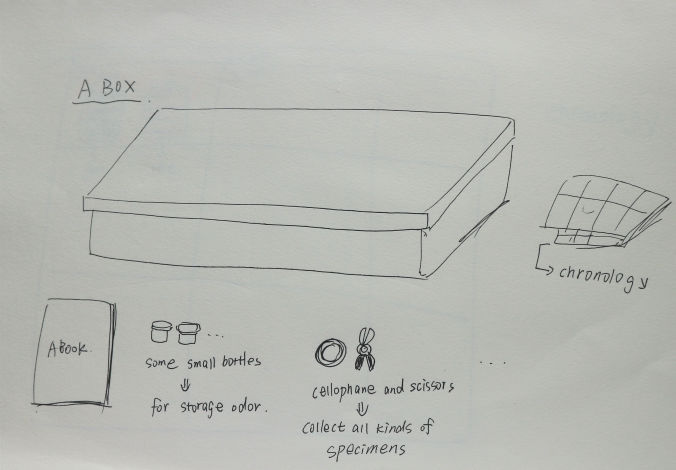 A BOX.
chronology
A BOOK.
some small bottles
for storage odor.
cellophane and scissors
collect all kinds of
specimens